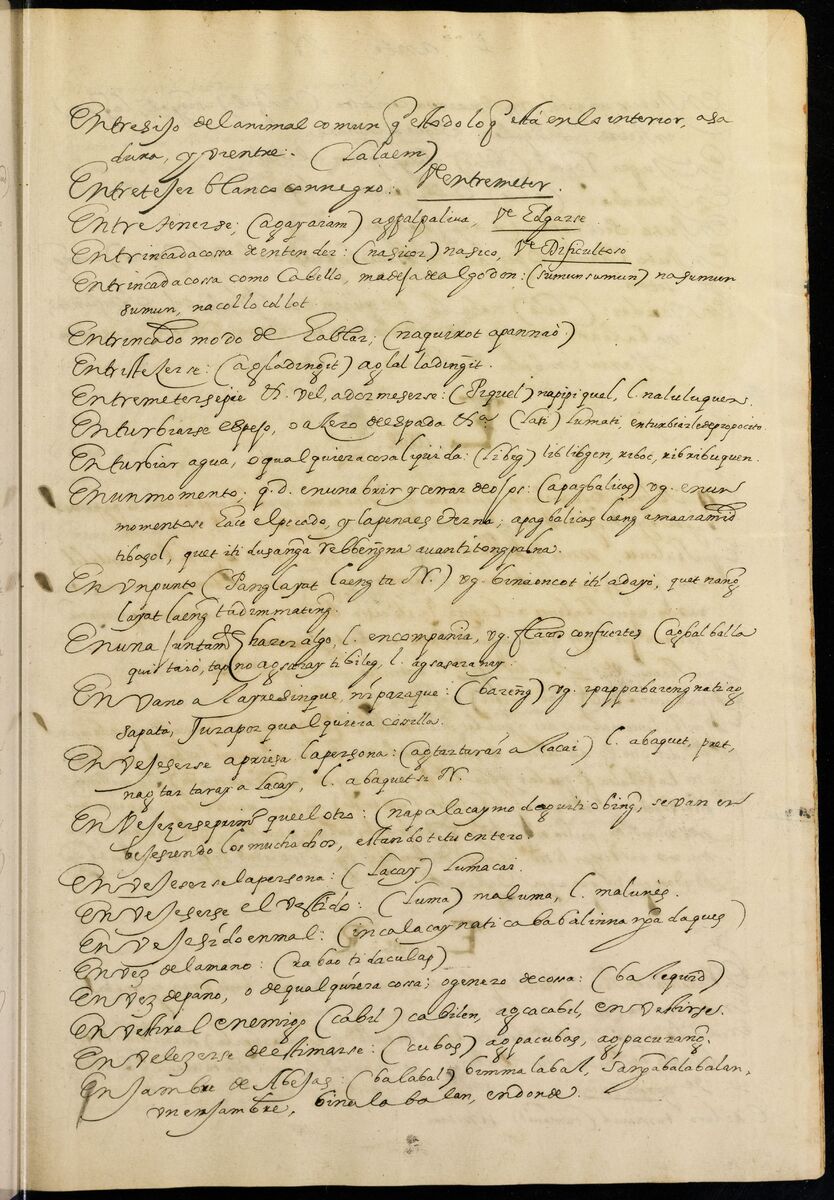 Entresijo del animal comun q̃ es todo lo q̃ está en lo interior, asa
dura, y vientre. (Lalaem)
Entretejer blanco con negro. Vᵉ entremeter.
Entretenerse; (agayaiam) agpalpaliua, Vᵉ Edgarse
Entrincada cossa de entender: (nasicor) nasico, Vᵉ Dificultoso
Entrincada cossa como Cabello, madeja de algodon: (sumunsumun) nasumun
sumun, nacollocollot.
Entrincado modo de Hablar; (naquirot apannao)
Entristeserse: (agladingit) aglalladingit.
Entremeterse pie vel, adormeserse: (Piquel) napipiquel, l. naluluquen.
Enturbiarse espejo, o asero de espada (Lati) Lumati, enturbiarle de proposito.
Enturbiar agua, o qualquiera cosa liquida: (Libeg) liblibgen, riboc, ribribuquen.
En un momento; q.d. en un abrir y cerrar de ojos: (apagbalicas) vg. en un
momento se hace el pecado, y la pena es eterna; apagbalicas laeng amaaramid
tibasol, quet iti dusangna
En un punto (Panglayat laeng ta N.) vg. binaoncot iti adayo, quet nang
layat laeng tadimmateng.
En una juntamᵗᵉ hazer algo, l. en compania, vg. (agbalballa
quistaio, tapno agsaray ti bileg, l. agsasaranay.
En vano al ayre sin que, ni para que: (bareng) vg. ipappabareng nati ag
sapata, Jura por qualquiera cosilla.
Envejeserse apriesa la persona: (agtartaray a Lacai) l. abaquet, pret,
nagtartaray a Lacay, l. abaquet si N.
Envejezerse primᵒ que el otro: (napalacaymo dagiti obing, se van en
bejesiendo los muchachos, estando tetu entero.
Envejeserse la persona: (Lacay) Lumacai.
Envejeserse el vestido: (Luma) maluma, l. malunes.
Envejesido en mal: (incalacaynati cababalinna daques)
Envez de la mano: (rabao ti daculap)
Envez de paño, o de qualquiera cossa; o genero de cossa: (baliquid)
Envestir al enemigo (cabil) cabilen, agcacabil, envestirse.
Envelezerse de estimarse: (cubas) agpacubas, agpacurang.
Enjambre de Abejas: (balabal) bimmalabal, sangabalabalan,
un enjambre, binalabalan, en donde.